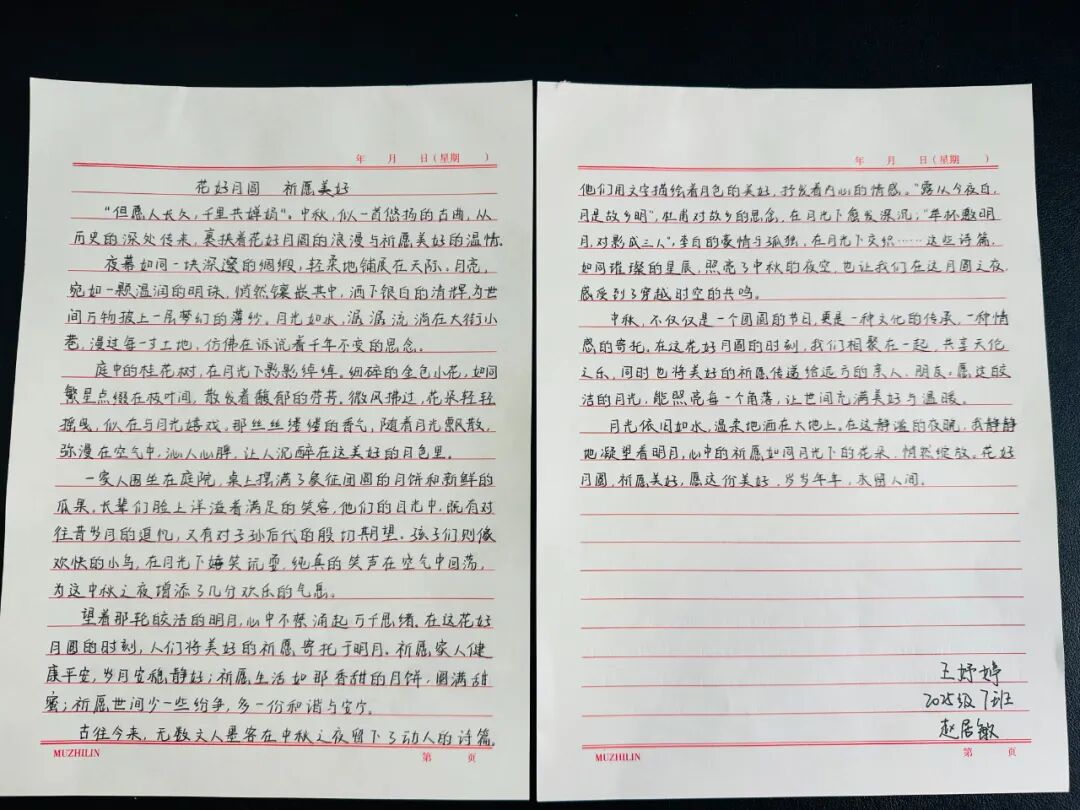 年 月 日（星期 ）
花好月圆 祈愿美好
"但愿人长久，千里共婵娟"。中秋，似一首悠扬的古曲，从
历史的深处传来，裹挟着花好月圆的浪漫与祈愿美好的温情。
夜幕如同一块深邃的绸缎，轻柔地铺展在天际。月亮，
宛如一颗温润的明珠，悄然镶嵌其中，洒下银白的清辉，为世
间万物披上一层梦幻的薄纱。月光如水，潺潺流淌在大街小
巷，漫过每一寸土地，仿佛在诉说着千年不变的思念。
庭中的桂花树，在月光下影影绰绰。细碎的金色小花，如同
繁星点缀在枝叶间，散发着馥郁的芬芳。微风拂过，花朵轻轻
摇曳，似在与月光嬉戏，那丝丝缕缕的香气，随着月光飘散，
弥漫在空气中，沁人心脾，让人沉醉在这美好的月色里。
一家人围坐在庭院，桌上摆满了象征团圆的月饼和新鲜的
瓜果。长辈们脸上洋溢着满足的笑容，他们的目光中，既有对
往昔岁月的追忆，又有对子孙后代的殷切期望。孩子们则像
欢快的小鸟，在月光下嬉笑玩耍，纯真的笑声在空气中回荡，
为这中秋之夜增添了几分欢乐的气息。
望着那轮皎洁的明月，心中不禁涌起万千思绪。在这花好
月圆的时刻，人们将美好的祈愿寄托于明月。祈愿家人健
康平安，岁月安稳静好；祈愿生活如那香甜的月饼，圆满甜
蜜；祈愿世间少一些纷争，多一份和谐与安宁。
古往今来，无数文人墨客在中秋之夜留下了动人的诗篇。
MUZHILIN 第 页
年 月 日（星期 ）
他们用文字描绘着月色的美好，抒发着内心的情感。"露从今夜白，
月是故乡明"，杜甫对故乡的思念，在月光下愈发深沉；"举杯邀明
月，对影成三人"，李白的豪情与孤独，在月光下交织……这些诗篇，
如同璀璨的星辰，照亮了中秋的夜空，也让我们在这月圆之夜，
感受到了穿越时空的共鸣。
中秋，不仅仅是一个团圆的节日，更是一种文化的传承，一种情
感的寄托。在这花好月圆的时刻，我们相聚在一起，共享天伦
之乐，同时也将美好的祈愿传递给远方的亲人、朋友。愿这皎
洁的月光，能照亮每一个角落，让世间充满美好与温暖。
月光依旧如水，温柔地洒在大地上。在这静谧的夜晚，我静静
地凝望着明月，心中的祈愿如同月光下的花朵，悄然绽放。花好
月圆，祈愿美好，愿这份美好，岁岁年年，永留人间。
王妤婷
2025级7班
赵居敏
MUZHILIN 第 页